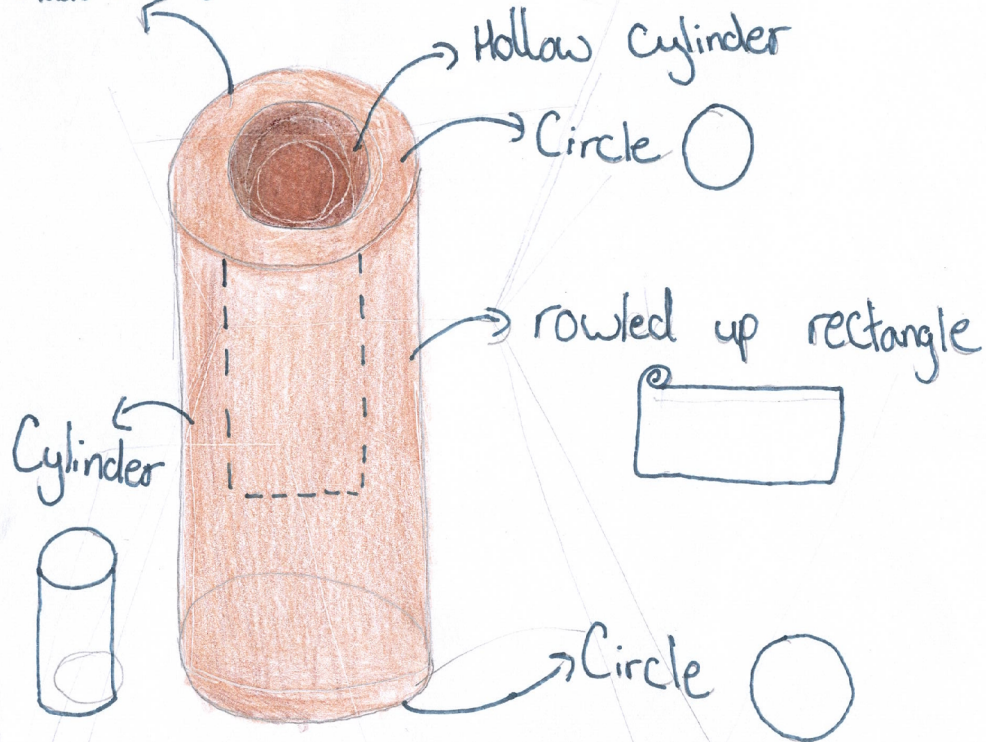 Hollow cylinder
Circle
rowled up rectangle
Cylinder
Circle